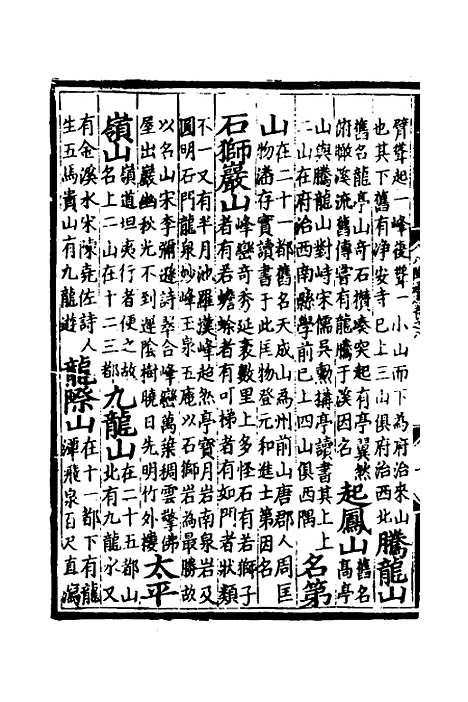 臂聳起一峰後聳一小山而下為府治來山
也其下舊有净安寺已上三山俱府治西北
騰龍山
舊名龍亭山奇石攢奏突起有亭翼然
俯瞰溪流舊傳嘗有龍騰于溪因名
起鳳山
舊名髙亭
山與騰龍山對峙宋儒吳勲搆亭讀書其上上
二山在府治西南縣學前已上四山俱西隅
名第
山
在二十一都舊名天成山為州前山唐郡人周匡
物潘存實讀書于此匡物登元和進士第因名
石獅巖山
峰巒奇秀延袤數里上多怪石有若獅子
者有若蟾蜍者有可梯者有如門者狀類
不一又有半月池羅漢峰超然亭寶月岩南泉岩又
圓明石門龍泉妙峰玉泉五庵以石獅岩為最勝故
以名山宋李彌遜詩翠合峰巒萬槩稠雲擎佛
屋出巖幽秋光不到遲陰樹曉日先明竹外樓
太平
嶺山
嶺道坦夷行者便之故
名上二山在十二三都
九龍山
在二十五都山
北有九龍水又
有金溪水宋陳堯佐詩人
生五馬貴山有九龍遊
龍際山
在十一都下有龍
潭飛泉百尺直瀉